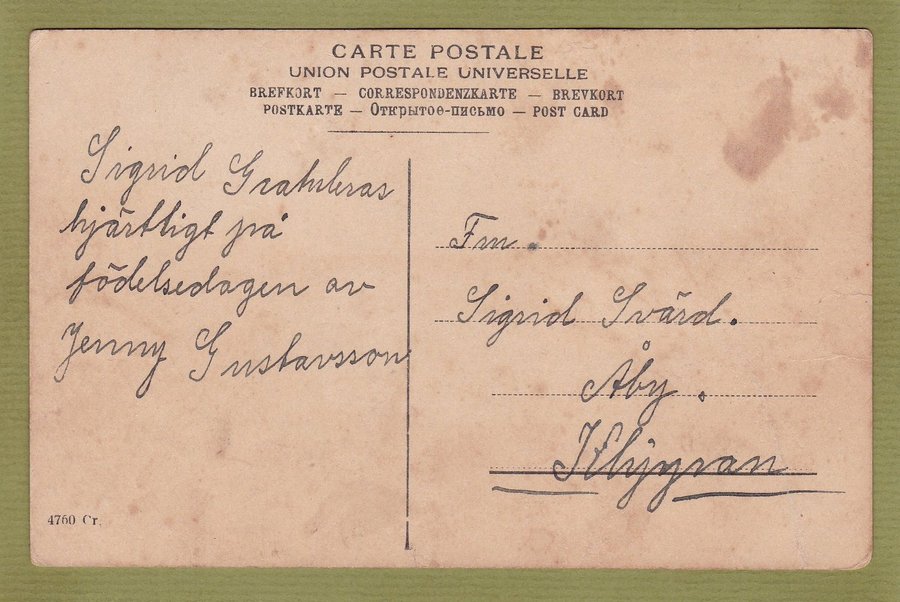 CARTE POSTALE
UNION POSTALE UNIVERSELLE
BREFKORT — CORRESPONDENZKARTE — BREVKORT
POSTKARTE — Открытое-письмо — POST CARD
Sigrid Gratuleras
hjärtligt på
födelsedagen av
Jenny Gustavsson
Frn.
Sigrid Svärd.
Åby.
4760 Cr.